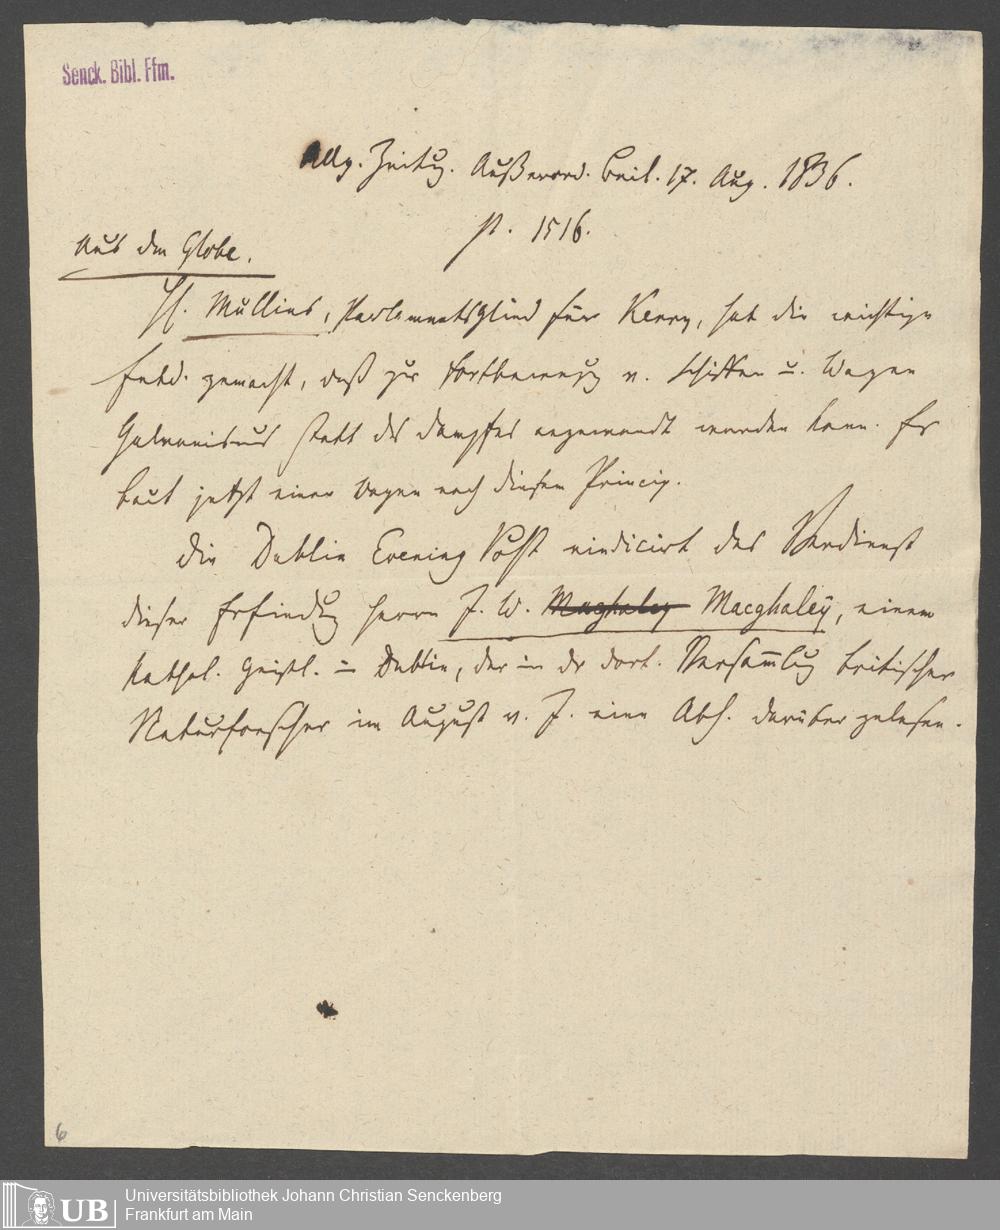 Senck. Bibl. Ffm.
Allg. Zeitug. Außerord. Beil. 17. Aug. 1836.
p. 1516.
Aus dem Globe.
H. Mullins, Parlamentsglied für Kerry, hat die wichtige
Entd. gemacht, daß zur Fortbewegug v. Schiffen u. Wagen
Galvanismus statt des Dampfes angewandt werden kann. Er
baut jetzt einen Wagen nach diesem Princip.
Die Dublin Evening Post vindicirt das Verdienst
dieser Erfindug Herrn J. W. Maghaley Macghaley, einem
kathol. Geistl. in Dublin, der in der dort. Versam̄lug britischer
Naturforscher im August v. J. eine Abh. darüber gelesen.
6
UB
Universitätsbibliothek Johann Christian Senckenberg
Frankfurt am Main